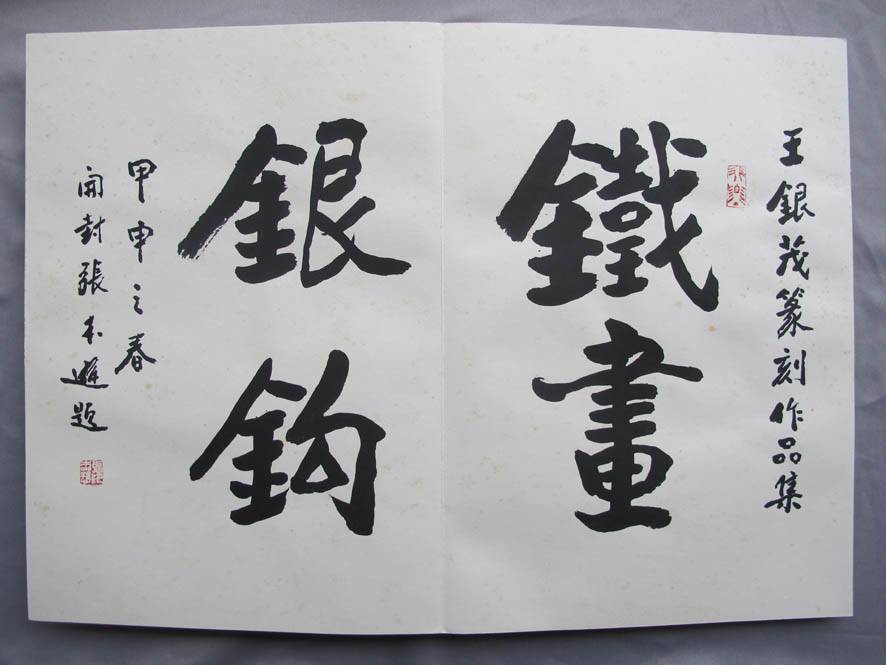 王銀茂篆刻作品集
鐵畫
銀鈎
甲申之春
開封張本遜題